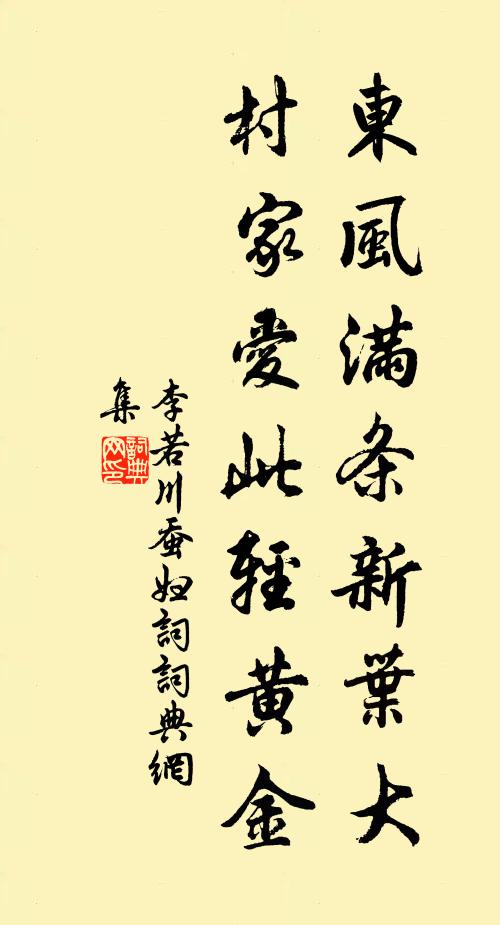 東風満条新葉大
村家愛此輕黄金
李若川蚕妇詞詞典網
集
詞典
网印